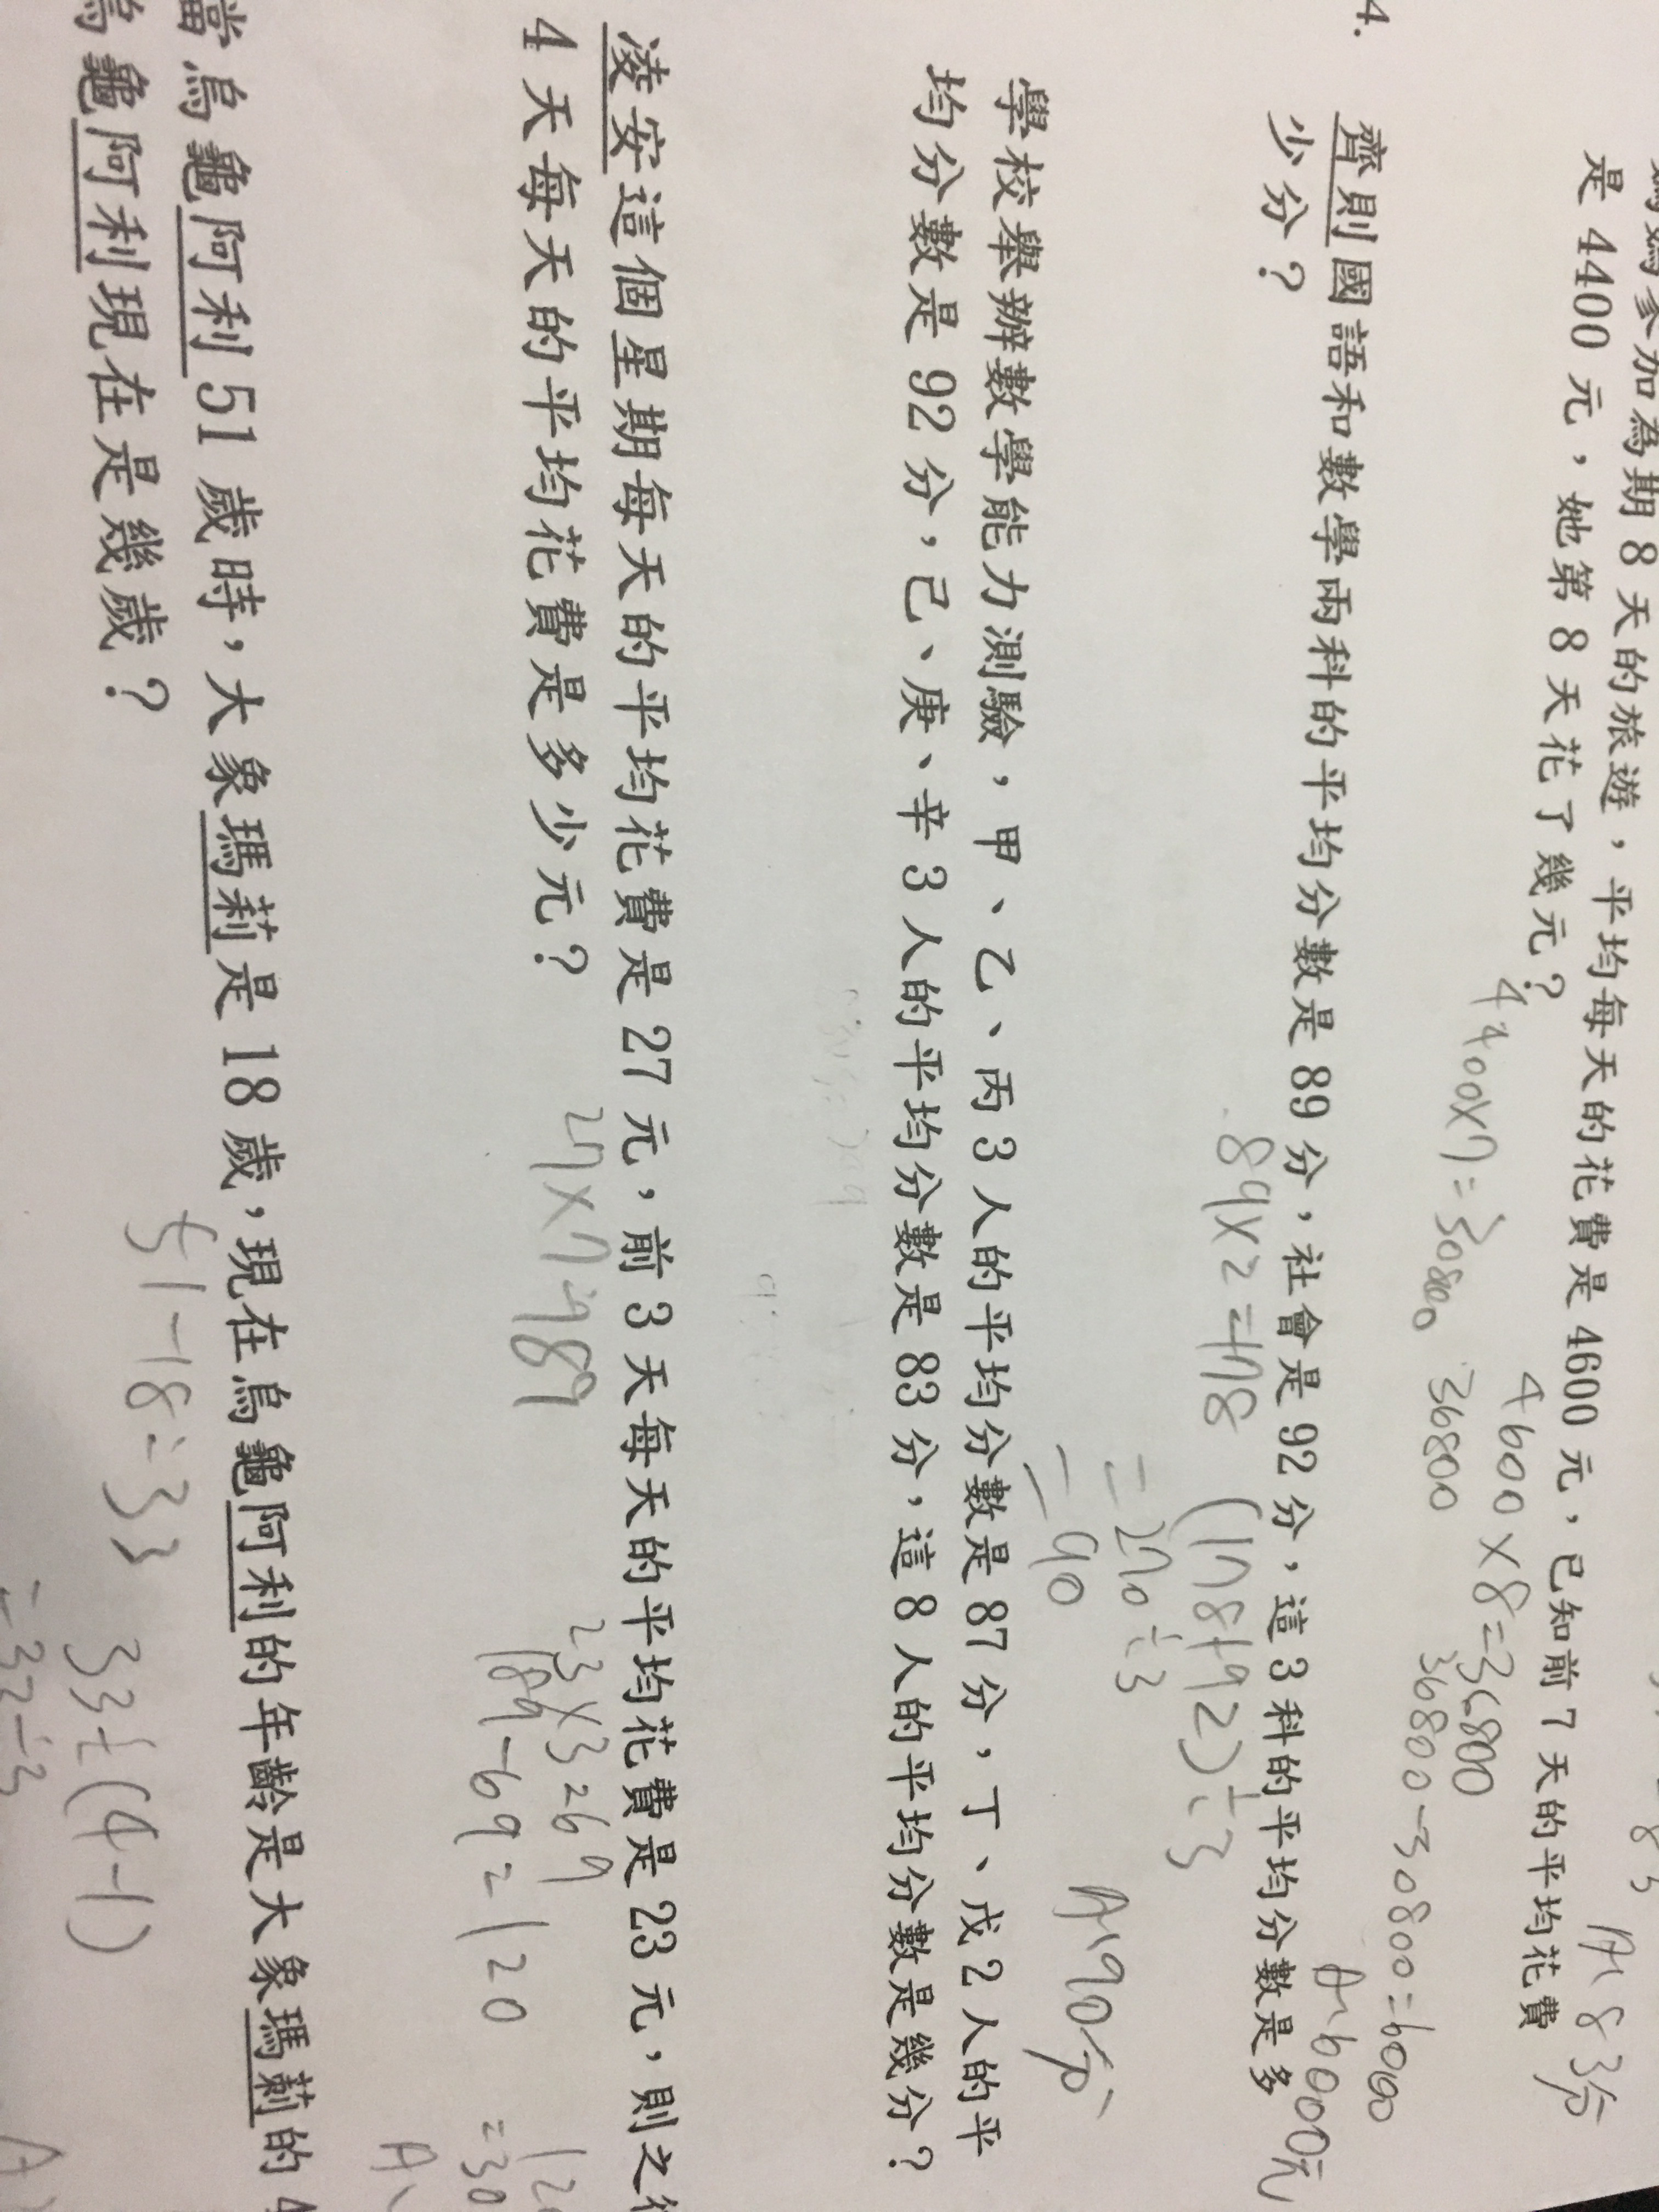 媽媽參加為期 8 天的旅遊，平均每天的花費是 4600 元，已知前 7 天的平均花費
是 4400 元，她第 8 天花了幾元？
4400×7=30800
4600×8=36800
36800
36800-30800=6000
A、6000元
A、83分
4.
齊則國語和數學兩科的平均分數是 89 分，社會是 92 分，這 3 科的平均分數是多
少分？
89×2=178
(178+92)÷3
=270÷3
=90
A、90分
學校舉辦數學能力測驗，甲、乙、丙 3 人的平均分數是 87 分，丁、戊 2 人的平
均分數是 92 分，己、庚、辛 3 人的平均分數是 83 分，這 8 人的平均分數是幾分？
凌安這個星期每天的平均花費是 27 元，前 3 天每天的平均花費是 23 元，則之
4 天每天的平均花費是多少元？
27×7=189
23×3=69
189-69=120
=30
A、
當烏龜阿利 51 歲時，大象瑪莉是 18 歲，現在烏龜阿利的年齡是大象瑪莉的 4
烏龜阿利現在是幾歲？
51-18=33
33÷(4-1)
=33÷3
A